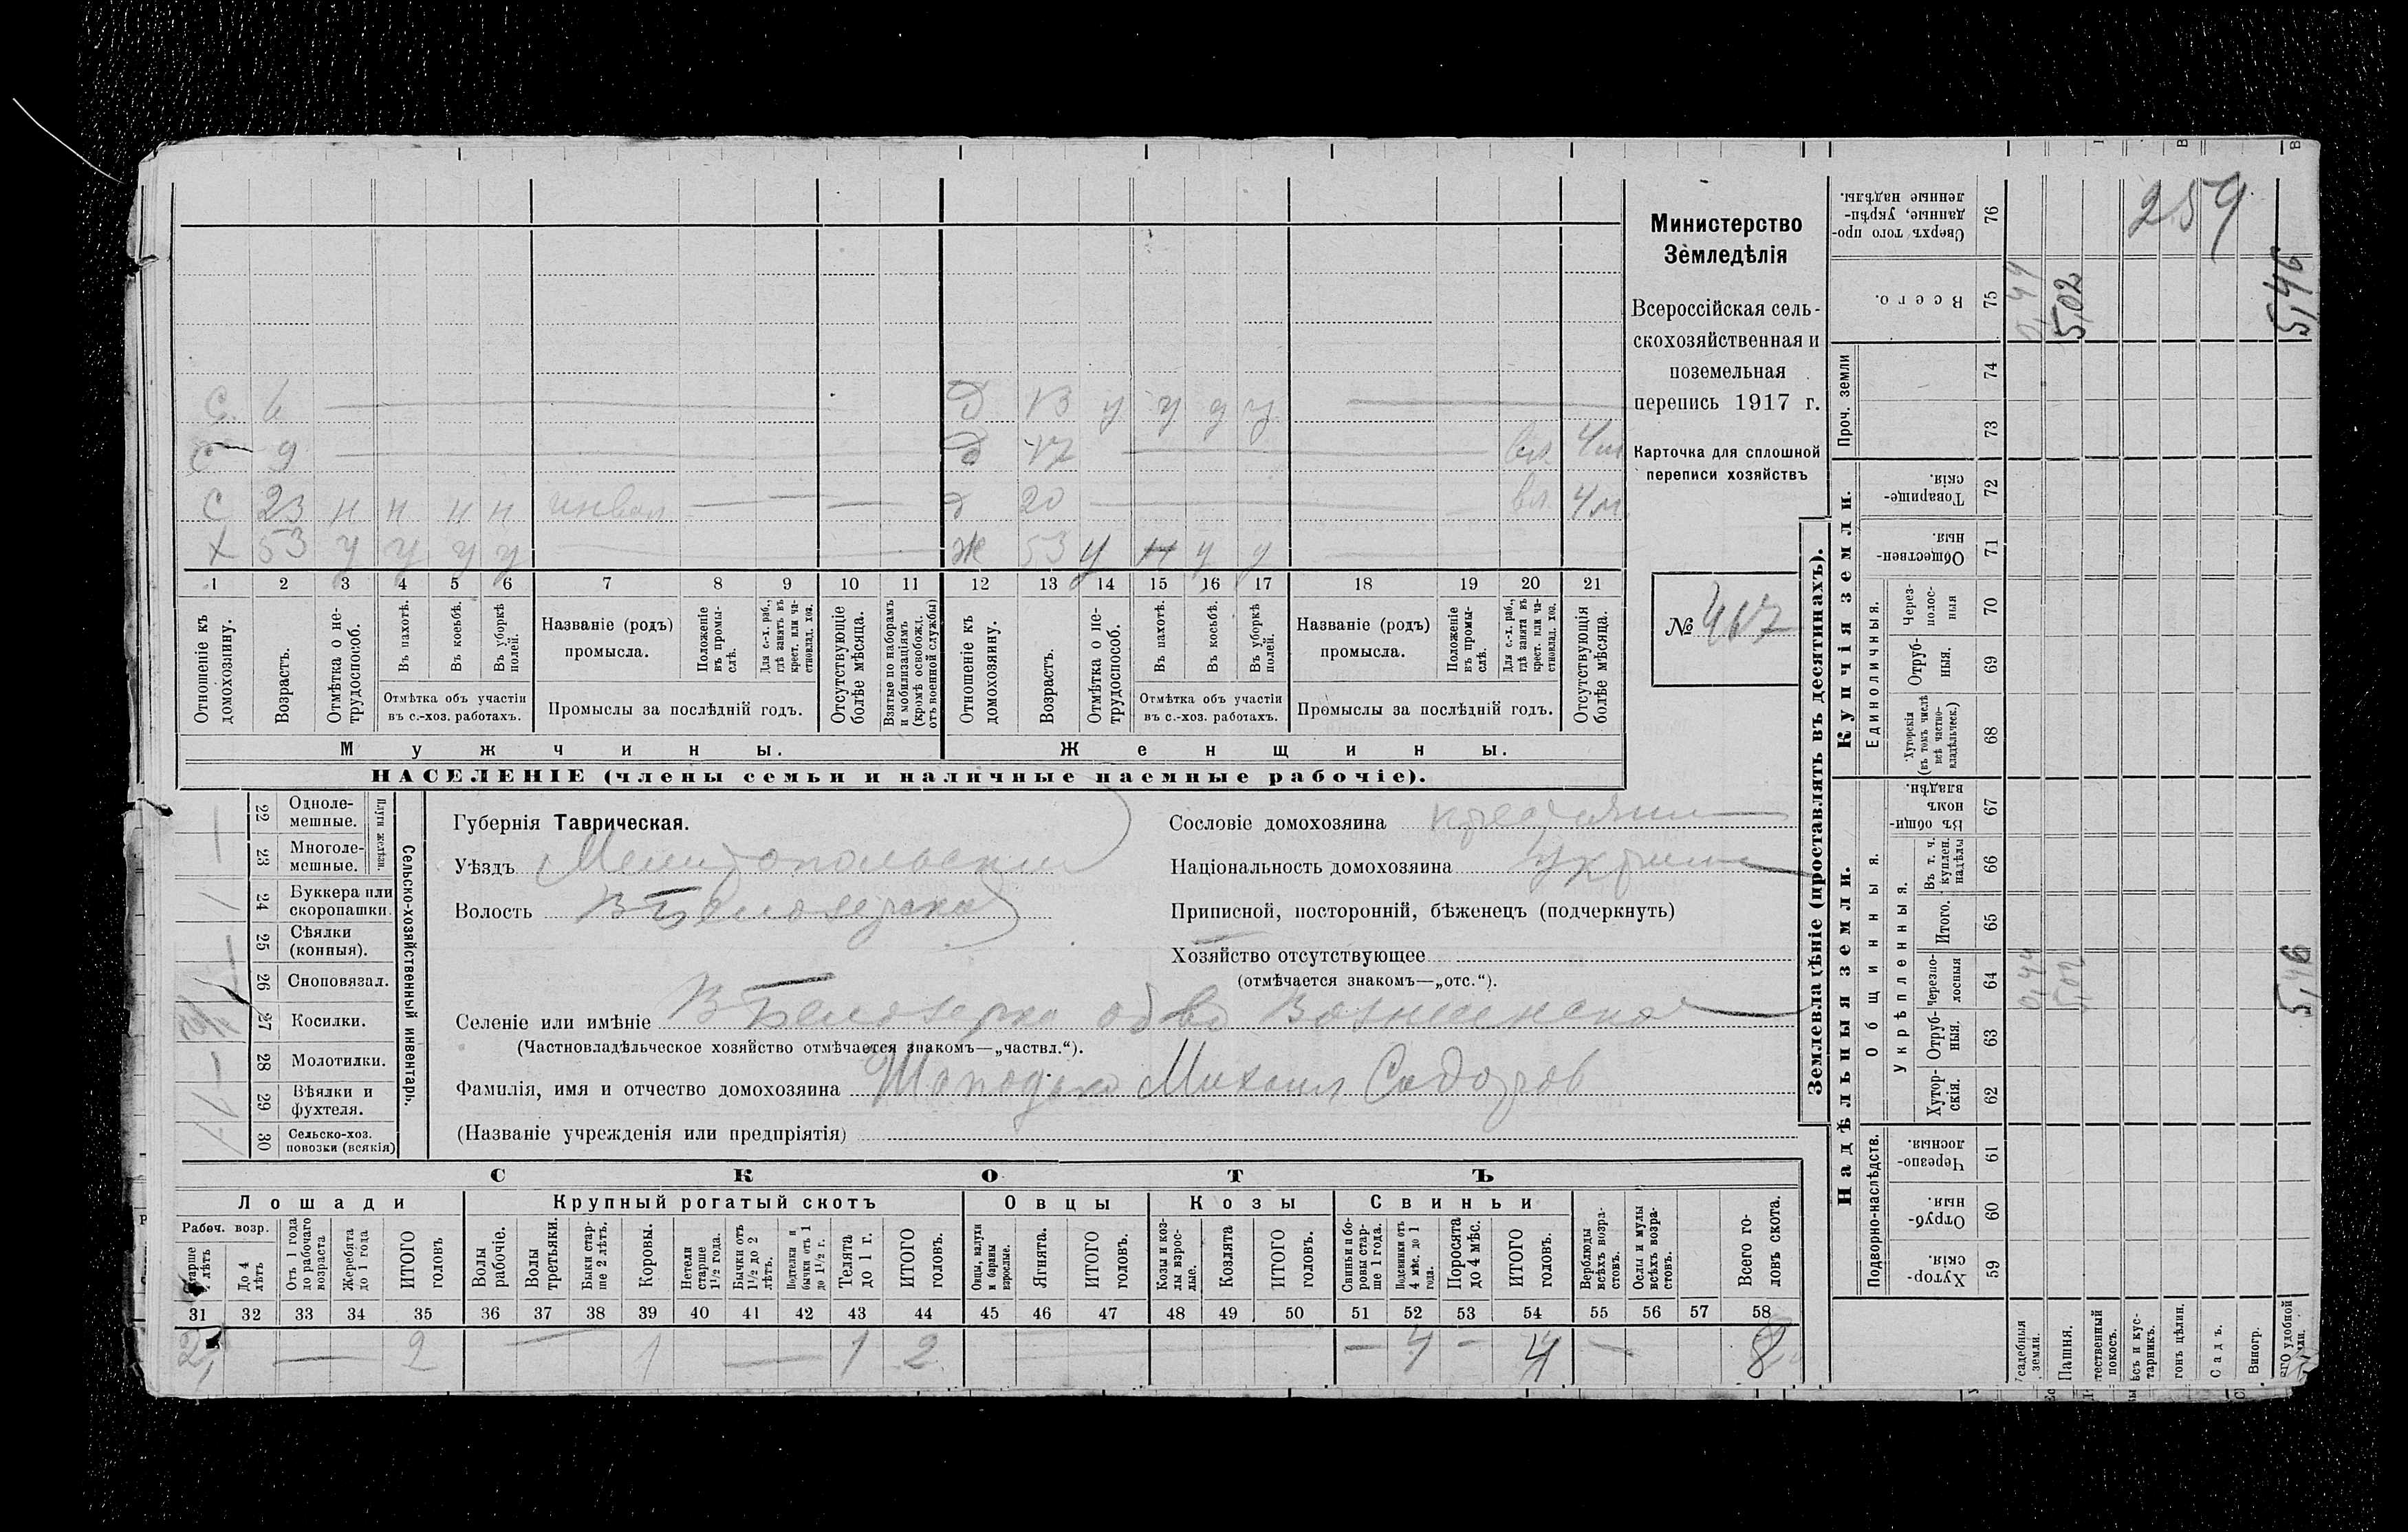 С. 6 — Д 13 у у у у —
С 9 — Д 17 — вл 4 м
С 23 н н н н инвал — — — д 20 — вл 4 м
Х 53 у у у у — ж 53 у н у у —
1 2 3 4 5 6 7 8 9 10 11 12 13 14 15 16 17 18 19 20 21
Отношеніе къ домохозяину.
Возрастъ.
Отмѣтка о не-
трудоспособ.
Въ пахотѣ.
Въ косьбѣ.
Въ уборкѣ
полей.
Отмѣтка объ участіи
въ с.-хоз. работахъ.
Названіе (родъ)
промысла.
Положеніе
въ промы-
слѣ.
Для с.-х. раб.,
гдѣ занятъ въ
крест. или ча-
стновлад. хоз.
Промыслы за послѣдній годъ.
Отсутствующіе
болѣе мѣсяца.
Взятые по наборамъ
и мобилизаціямъ
(кромѣ освобожд.
отъ военной службы)
Отношеніе къ
домохозяину.
Возрастъ.
Отмѣтка о не-
трудоспособ.
Въ пахотѣ.
Въ косьбѣ.
Въ уборкѣ
полей.
Отмѣтка объ участіи
въ с.-хоз. работахъ.
Названіе (родъ)
промысла.
Положеніе
въ промы-
слѣ.
Для с.-х. раб.,
гдѣ занята въ
крест. или ча-
стновлад. хоз.
Промыслы за послѣдній годъ.
Отсутствующія
болѣе мѣсяца.
Мужчины.
Женщины.
НАСЕЛЕНІЕ (члены семьи и наличные наемные рабочіе).
Министерство
Земледѣлія
Всероссійская сель-
скохозяйственная и
поземельная
перепись 1917 г.
Карточка для сплошной
переписи хозяйствъ
№ 467
22 Одноле-
мешные.
23 Многоле-
мешные.
Плуги желѣзн.
24 Буккера или
скоропашки.
25 Сѣялки
(конныя).
26 Сноповязал.
27 Косилки.
28 Молотилки.
29 Вѣялки и
фухтеля.
30 Сельско-хоз.
повозки (всякія)
Сельско-хозяйственный инвентарь.
Губернія Таврическая.
Уѣздъ Мелитопольский
Волость В Белозерская
Сословіе домохозяина крестьянин
Національность домохозяина Украин
Приписной, посторонній, бѣженецъ (подчеркнуть)
Хозяйство отсутствующее
(отмѣчается знакомъ—„отс.“).
Селеніе или имѣніе В Белозерка об во
(Частновладѣльческое хозяйство отмѣчается знакомъ—„частвл.“).
Фамилія, имя и отчество домохозяина Михаил Сидоров
(Названіе учрежденія или предпріятія)
СКОТЪ
Лошади
Крупный рогатый скотъ
Овцы
Козы
Свиньи
Рабоч. возр.
Старше
4 лѣтъ
До 4
лѣтъ
Отъ 1 года
до рабочаго
возраста
Жеребята
до 1 года
ИТОГО
головъ
Волы
рабочіе.
Волы
третьяки.
Быки стар-
ше 2 лѣтъ.
Коровы.
Нетели
старше
1½ года.
Бычки отъ
1½ до 2
лѣтъ.
Подтелки и
бычки отъ 1
до 1½ г.
Телята
до 1 г.
ИТОГО
головъ.
Овцы, валухи
и бараны
взрослые.
Ягнята.
ИТОГО
головъ.
Козы и коз-
лы взрос-
лые.
Козлята
ИТОГО
головъ.
Свиньи и бо-
ровы стар-
ше 1 года.
Подсвинки отъ
4 мѣс. до 1
года.
Поросята
до 4 мѣс.
ИТОГО
головъ.
Верблюды
всѣхъ возра-
стовъ.
Ослы и мулы
всѣхъ возра-
стовъ.
Всего го-
ловъ скота.
31 32 33 34 35 36 37 38 39 40 41 42 43 44 45 46 47 48 49 50 51 52 53 54 55 56 57 58
2 — 2 — 1 — 1 2 — 4 — 4 — 8
Землевладѣніе (проставлять въ десятинахъ).
Надѣльныя земли.
Купчія земли.
Проч. земли
Подворно-наслѣдств.
Общинныя.
Укрѣпленныя.
Единоличныя.
Сверхъ того про-
данные, укрѣп-
ленные надѣлы.
76
259
Всего.
75
0,44
5,02
5,46
74
73
Товарище-
скія.
72
Обществен-
ныя.
71
Через-
полос-
ныя
70
Отруб-
ныя.
69
Хуторскія
(въ томъ числѣ
всѣ частно-
владѣльческ.)
68
Въ общин-
номъ
владѣн.
67
Въ т. ч.
куплен.
надѣлы
66
Итого.
65
Черезпо-
лосныя
64
0,44
5,02
5,46
Отруб-
ныя.
63
Хутор-
скія.
62
Черезпо-
лосныя.
61
Отруб-
ныя.
60
Хутор-
скія
59
Усадебныя
земли.
Пашня.
тественный
покосъ.
ѣсъ и кус-
тарникъ.
гонъ цѣлин.
Садъ.
Виногр.
его удобной
земли.